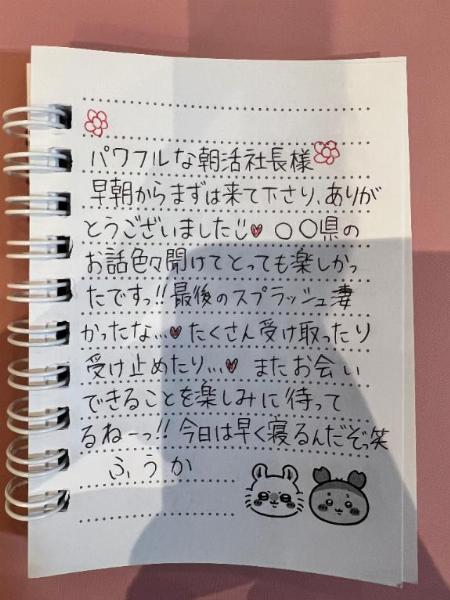 パワフルな朝活社長様
早朝からまずは来て下さり、ありが
とうございました♥ ○○県の
お話色々聞けてとっても楽しかっ
たですっ!!最後のスプラッシュ凄
かったな…♥たくさん受け取ったり
受け止めたり…♥ またお会い
できることを楽しみに待って
るねーっ!!今日は早く寝るんだぞっ笑
ふうか